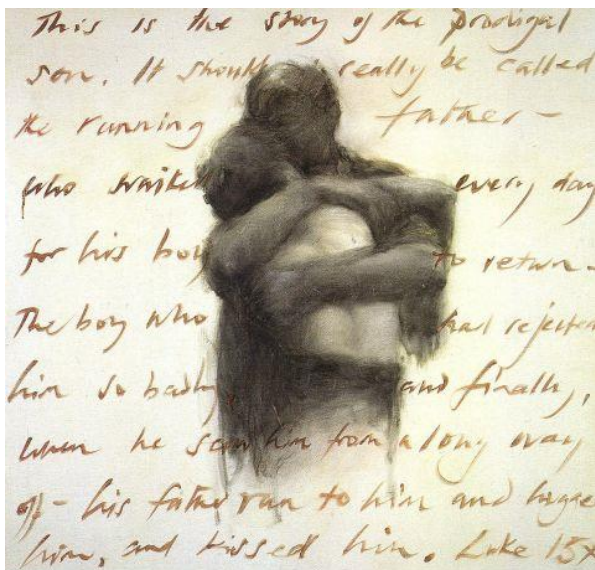 This is the story of the prodigal
son. It should really be called
the running father –
who waited every day
for his boy to return –
The boy who had rejected
him so badly, and finally,
when he saw him from a long way
off – his father ran to him and hugge
him, and kissed him. Luke 15